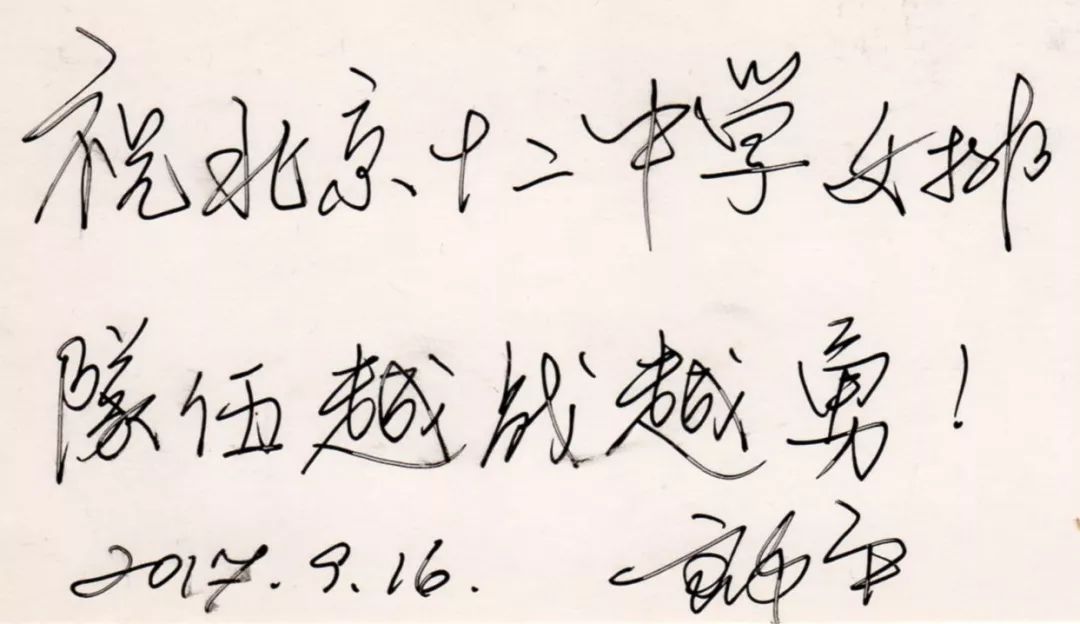 祝北京十二中学女排
隊伍越战越勇！
2017.9.16.